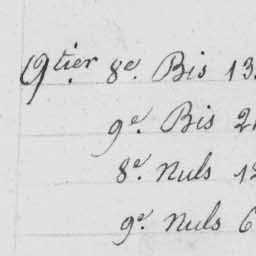 Qtier. 8e. Bis 13
9e. Bis 2
8e. Nuls 12
9e. Nuls 6